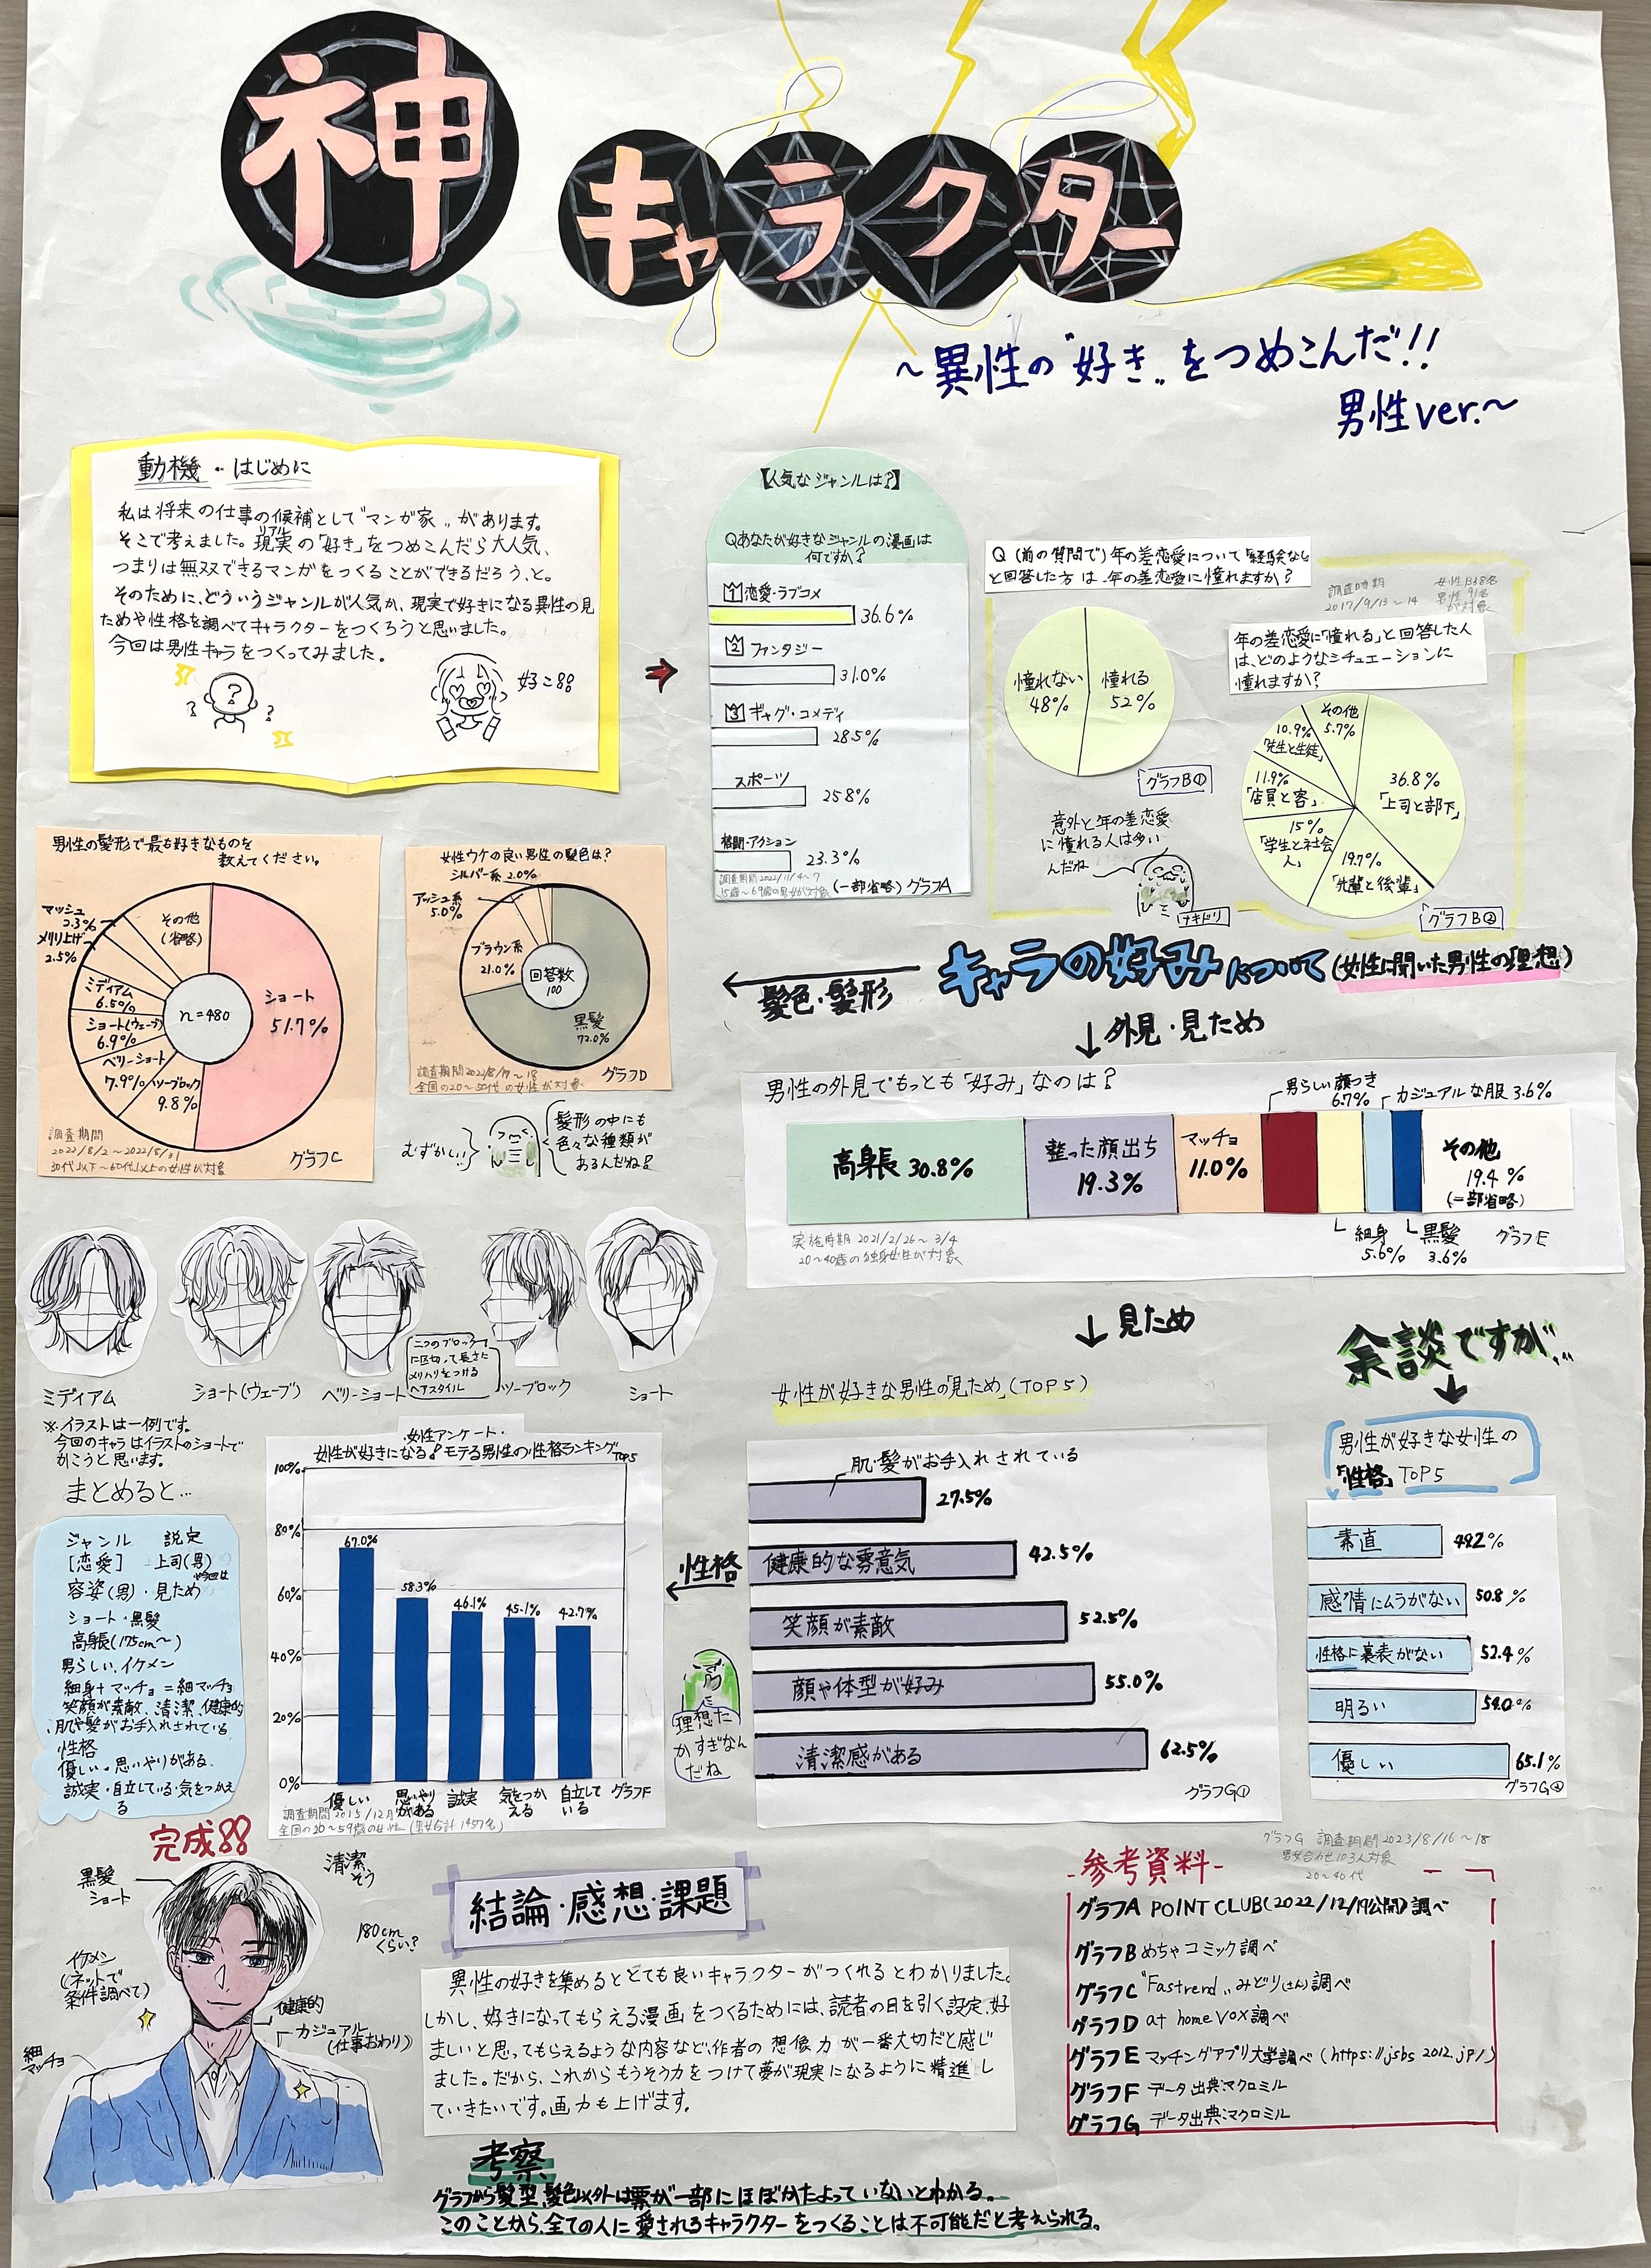 神キャラクター
～異性の"好き"をつめこんだ!!
男性ver.～
動機・はじめに
私は将来の仕事の候補として"マンガ家"があります。
そこで考えました。現実の「好き」をつめこんだら大人気、
リアル
つまりは無双できるマンガをつくることができるだろう、と。
そのために、どういうジャンルが人気か、現実で好きになる異性の見
ためや性格を調べてキャラクターをつくろうと思いました。
今回は男性キャラをつくってみました。
?
?
?
好こ!!
【人気なジャンルは?】
Qあなたが好きなジャンルの漫画は
何ですか?
1 恋愛・ラブコメ
36.6%
2 ファンタジー
31.0%
3 ギャグ・コメディ
28.5%
スポーツ
25.8%
格闘・アクション
23.3%
調査期間2022/11/4～7
15歳～69歳の男女が対象
(一部省略)グラフA
Q (前の質問で)年の差恋愛について「経験なし」
と回答した方は、年の差恋愛に憧れますか?
調査時期
2017/9/13～14
男性91名
が対象
憧れない
48%
憧れる
52%
グラフB①
意外と年の差恋愛
に憧れる人は多い
んだね
ナキドリ
年の差恋愛に「憧れる」と回答した人
は、どのようなシチュエーションに
憧れますか?
その他
5.7%
10.9%
「先生と生徒」
11.9%
「店員と客」
15%
「学生と社会人」
19.7%
「先輩と後輩」
36.8%
「上司と部下」
グラフB②
男性の髪形で最も好きなものを
教えてください。
マッシュ
2.3%
メリ上げ
2.5%
その他
(省略)
ミディアム
6.5%
ショート(ウェーブ)
6.9%
ベリーショート
7.9%
ツーブロック
9.8%
n=480
ショート
51.7%
調査期間
2022/8/2～2022/8/31
30代以下～60代以上の女性が対象
グラフC
女性ウケの良い男性の髪色は?
シルバー系 2.0%
アッシュ系
5.0%
ブラウン系
21.0%
回答数
100
黒髪
72.0%
調査期間2022/8/17～18
全国の20～50代の女性が対象
グラフD
むずかしい!!
髪形の中にも
色々な種類が
あるんだね!
キャラの好みについて(女性に聞いた男性の理想)
髪色・髪形
↓外見・見ため
男性の外見でもっとも「好み」なのは?
男らしい顔つき
6.7%
カジュアルな服 3.6%
高身長 30.8%
整った顔出ち
19.3%
マッチョ
11.0%
その他
19.4%
(一部省略)
細身
5.6%
黒髪
3.6%
グラフE
実施時期 2021/2/26～3/4
20～40歳の独身女性が対象
ミディアム
ショート(ウェーブ)
ベリーショート
二つのブロック
に区切って長さに
メリハリをつける
ヘアスタイル
ツーブロック
ショート
※イラストは一例です。
今回のキャラはイラストのショートで
かこうと思います。
まとめると…
ジャンル 説定
[恋愛] 上司(男)
今回は
容姿(男)・見ため
ショート・黒髪
高身長(175cm～)
男らしい、イケメン
細身+マッチョ=細マッチョ
笑顔が素敵、清潔、健康的
肌や髪がお手入れされている
性格
優しい・思いやりがある、
誠実・自立している・気をつかえ
る
・女性アンケート・
女性が好きになる!モテる男性の性格ランキングTOP5
100%
80%
60%
40%
20%
0%
67.0%
58.3%
46.1%
45.1%
42.7%
優しい
思いやり
がある
誠実
気をつか
える
自立して
いる
グラフF
調査期間2015/12月
全国の20～59歳の女性(男女合計1957名)
↓見ため
女性が好きな男性の「見ため」(TOP5)
肌・髪がお手入れされている
27.5%
健康的な雰意気
42.5%
笑顔が素敵
52.5%
顔や体型が好み
55.0%
清潔感がある
62.5%
グラフG①
性格
理想た
かすぎなん
だね
余談ですが…
男性が好きな女性の
「性格」TOP5
素直
49.2%
感情にムラがない
50.8%
性格に裏表がない
52.4%
明るい
54.0%
優しい
65.1%
グラフG②
グラフG 調査期間2023/8/16～18
男女合せ103人対象
20～40代
完成!!
黒髪
ショート
清潔
そう
180cm
くらい?
イケメン
(ネットで
条件調べて)
健康的
カジュアル
(仕事おわり)
細
マッチョ
結論・感想・課題
異性の好きを集めるととても良いキャラクターがつくれるとわかりました。
しかし、好きになってもらえる漫画をつくるためには、読者の目を引く設定、好
ましいと思ってもらえるような内容など、作者の想像力が一番大切だと感じ
ました。だから、これからもうそう力をつけて夢が現実になるように精進し
ていきたいです。画力も上げます。
-参考資料-
グラフA POINT CLUB(2022/12/19公開)調べ
グラフB めちゃコミック調べ
グラフC "Fastrend"みどり(さん)調べ
グラフD at home VOX調べ
グラフE マッチングアプリ大学調べ(https://jsbs2012.jp/)
グラフF データ出典:マクロミル
グラフG データ出典:マクロミル
考察
グラフから髪型、髪色以外は票が一部にほぼかたよっていないとわかる。
このことから、全ての人に愛されるキャラクターをつくることは不可能だと考えられる。